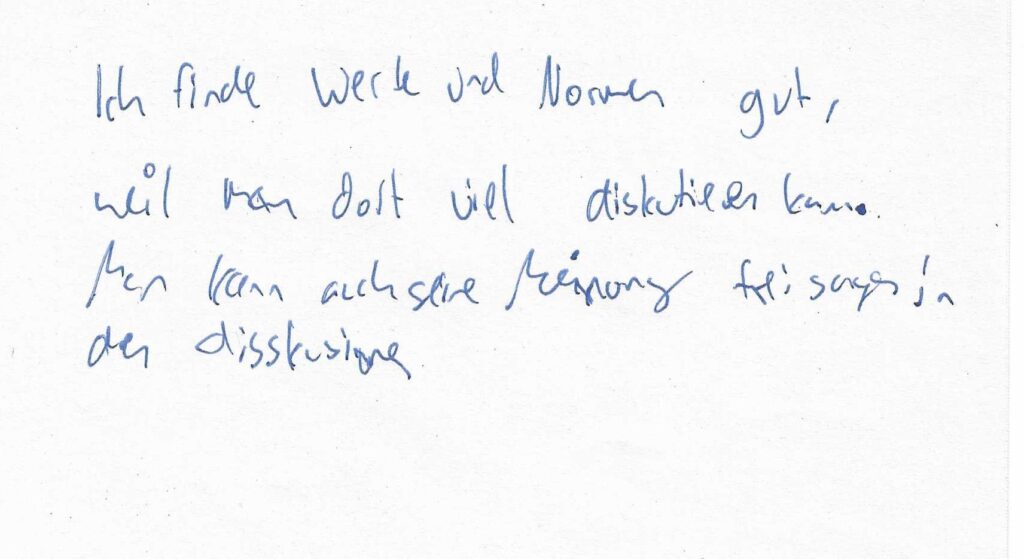 Ich finde Werte und Normen gut,
weil man dort viel diskutieren kann.
Man kann auch seine Meinung frei sagen in
den disskusione